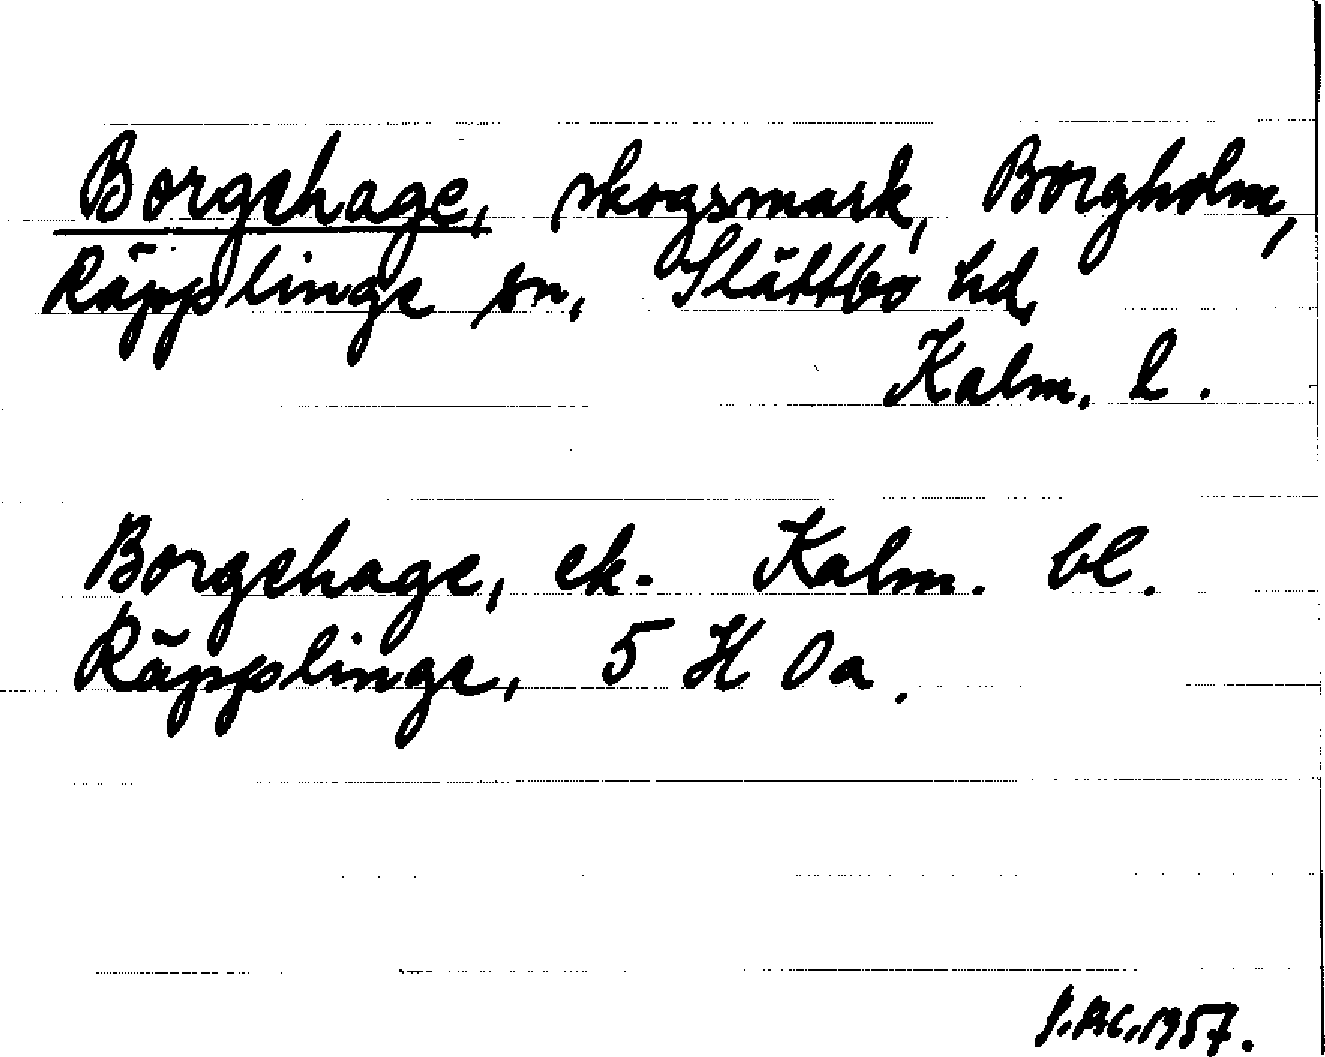 Borgehage, skogsmark, Borgholm,
Räpplinge sn, Slättbo hd,
Kalm. l.
Borgehage, ek. Kalm. bl.
Räpplinge, 5 H Oa.
1957.